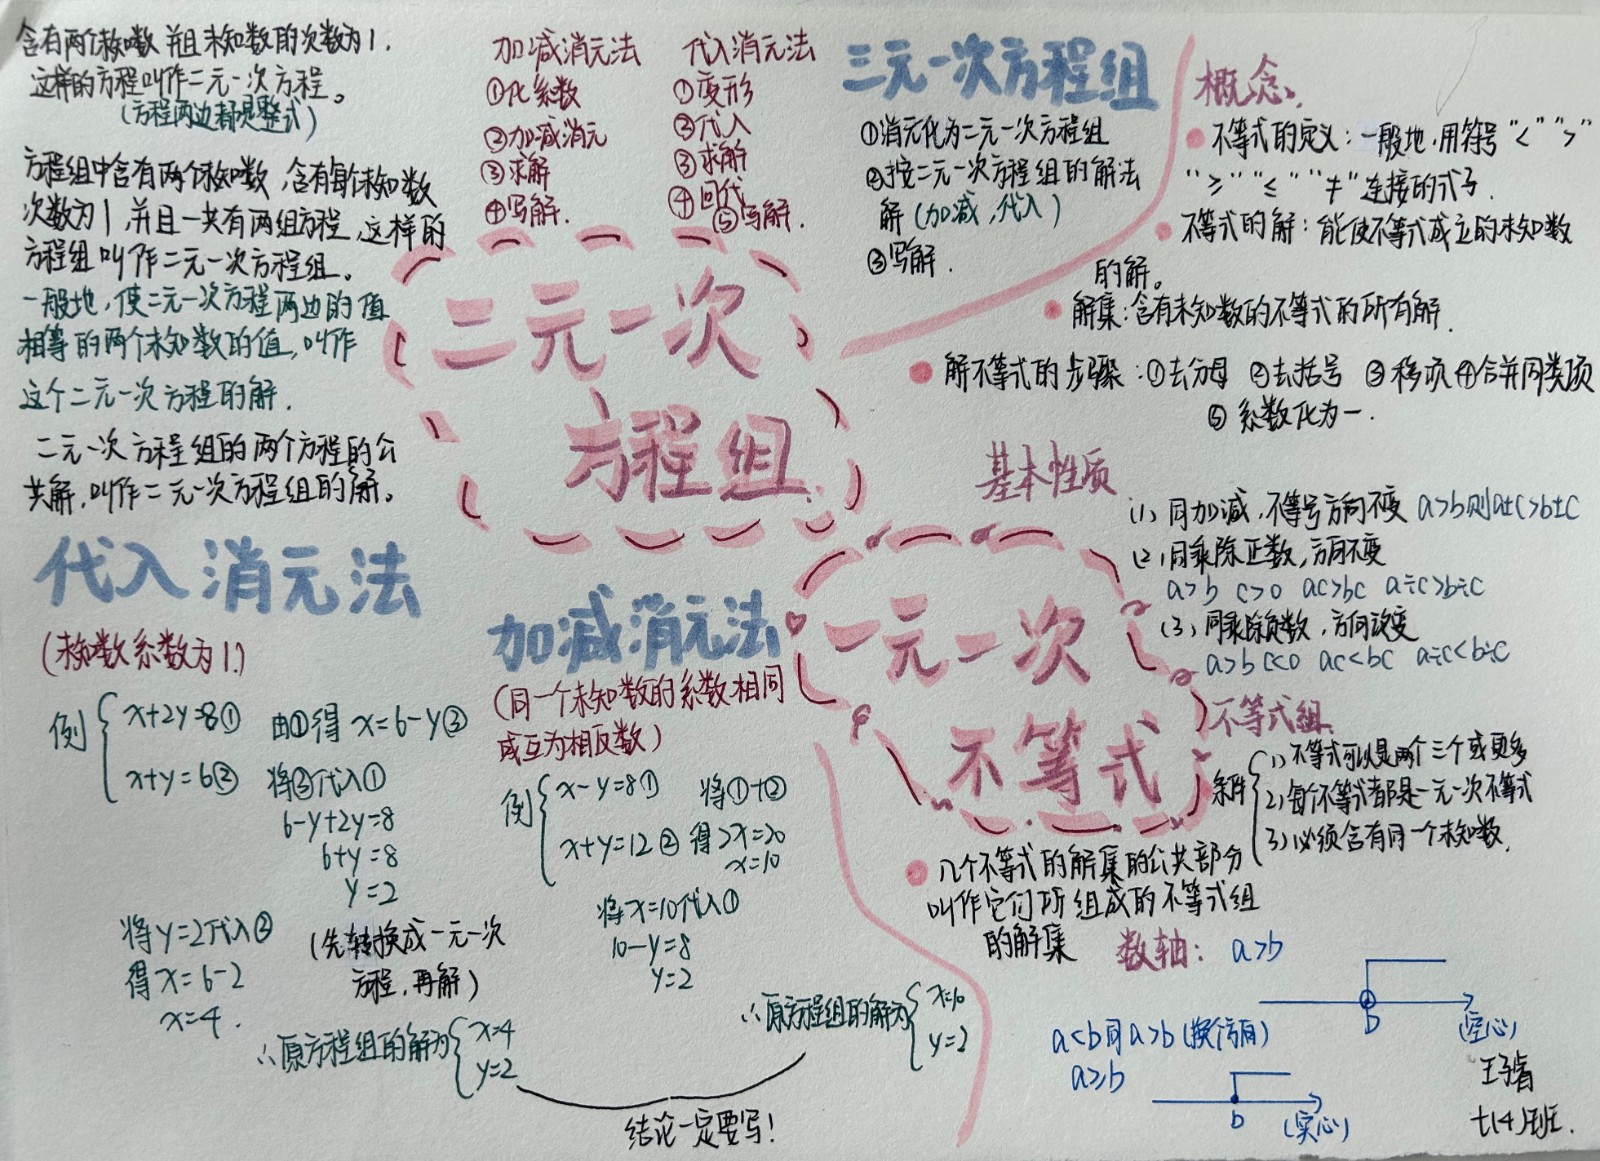 含有两个未知数并且未知数的次数为1.
这样的方程叫作二元一次方程。
(方程两边都是整式)
方程组中含有两个未知数,含有每个未知数
次数为1,并且一共有两组方程,这样的
方程组叫作二元一次方程组。
一般地,使二元一次方程两边的值
相等的两个未知数的值,叫作
这个二元一次方程的解.
二元一次方程组的两个方程的公
共解,叫作二元一次方程组的解。
加减消元法
①化系数
②加减消元
③求解
④写解.
代入消元法
①变形
②代入
③求解
④回代
⑤写解.
二元一次
方程组
三元一次方程组
①消元化为二元一次方程组
②按二元一次方程组的解法
解(加减,代入)
③写解.
概念.
不等式的定义:一般地,用符号“<”“>”
“≥”“≤”“≠”连接的式子.
不等式的解:能使不等式成立的未知数
的解。
解集:含有未知数的不等式的所有解.
解不等式的步骤:①去分母 ②去括号 ③移项④合并同类项
⑤系数化为一.
基本性质
(1)同加减,不等号方向不变 a>b则a±c>b±c
(2)同乘除正数,方向不变
a>b c>0 ac>bc a÷c>b÷c
(3)同乘除负数,方向改变
a>b c<0 ac<bc a÷c<b÷c
代入消元法
(未知数系数为1.)
例 { x+2y=8① 由①得 x=6-y③
x+y=6② 将③代入①
6-y+2y=8
6+y=8
y=2
将y=2代入②
得x=6-2
x=4.
(先转换成一元一次
方程,再解)
∴原方程组的解为 { x=4
y=2
加减消元法
(同一个未知数的系数相同
或互为相反数)
例 { x-y=8① 将①+②
x+y=12② 得2x=20
x=10
将x=10代入①
10-y=8
y=2
∴原方程组的解为 { x=10
y=2
结论一定要写!
一元一次
不等式
不等式组
条件 { 1)不等式可以是两个三个或更多
2)每个不等式都是一元一次不等式
3)必须含有同一个未知数.
几个不等式的解集的公共部分
叫作它们所组成的不等式组
的解集
数轴: a>b
b
(空心)
a<b同a>b(换个方向)
a≥b
b
(实心)
七(4)班.